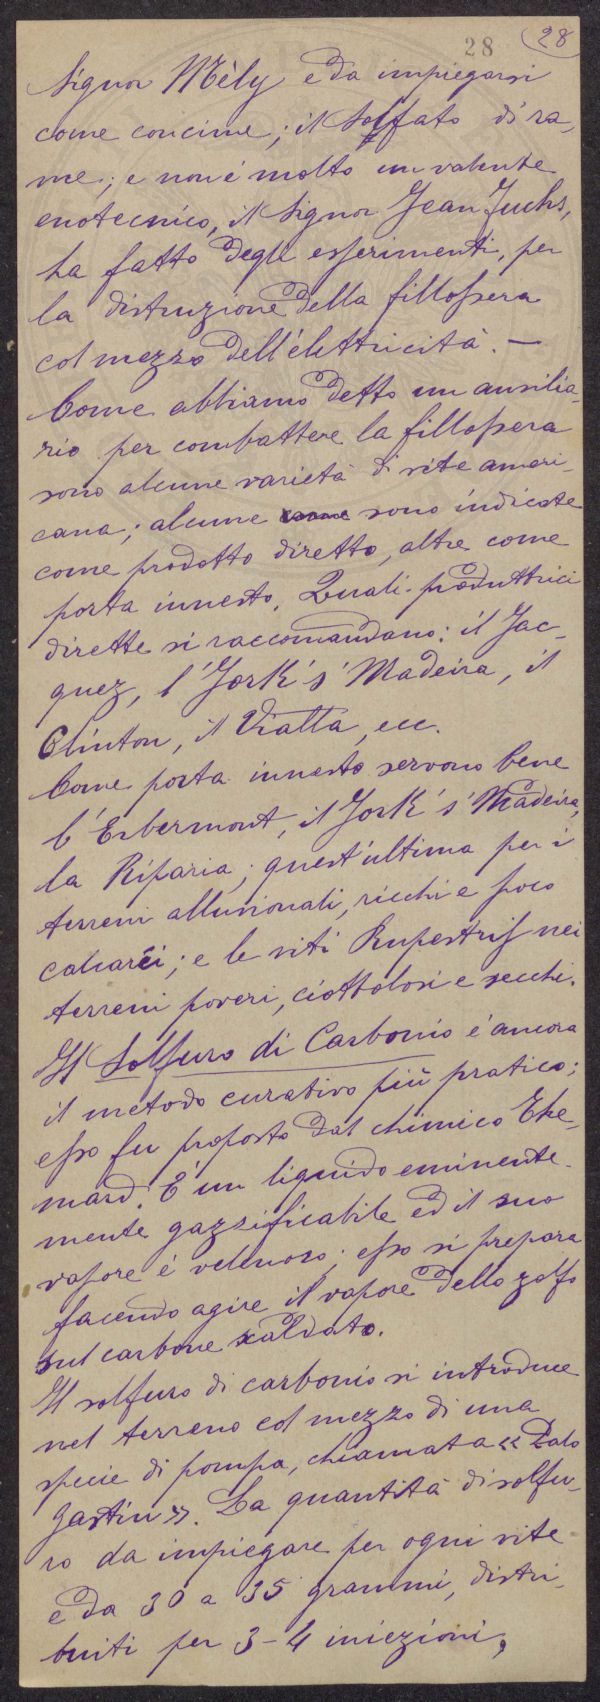 28 28
Signor Mèly e da impiegarsi
come concime; il Solfato di ra-
me; e non è molto un valente
enotecnico, il Signor Jean Fuchs,
ha fatto degli esperimenti, per
la distruzione della fillossera
col mezzo dell'elettricità. —
Come abbiamo detto un ausilia-
rio per combattere la fillossera
sono alcune varietà di vite ameri-
cana; alcune sono indicate
come prodotto diretto, altre come
porta innesto. Quali produttrici
dirette si raccomandano: il Jac-
quez, l'York's Madeira, il
Clinton, il Vialla, ecc.
Come porta innesto servono bene
l'Erbermont, il York's Madeira,
la Riparia; quest'ultima per i
terreni alluvionali, ricchi e poco
calcarei; e le viti Rupestris nei
terreni poveri, ciottolosi e secchi.
Il Solfuro di Carbonio è ancora
il metodo curativo più pratico;
esso fu proposto dal chimico The-
nard. È un liquido eminente-
mente gazsificabile ed il suo
vapore è velenoso; esso si prepara
facendo agire il vapore dello zolfo
sul carbone scaldato.
Il solfuro di carbonio si introduce
nel terreno col mezzo di una
specie di pompa, chiamata « Palo
Gastin ». La quantità di solfu-
ro da impiegare per ogni vite
è da 30 a 35 grammi, distri-
buiti per 3-4 iniezioni,